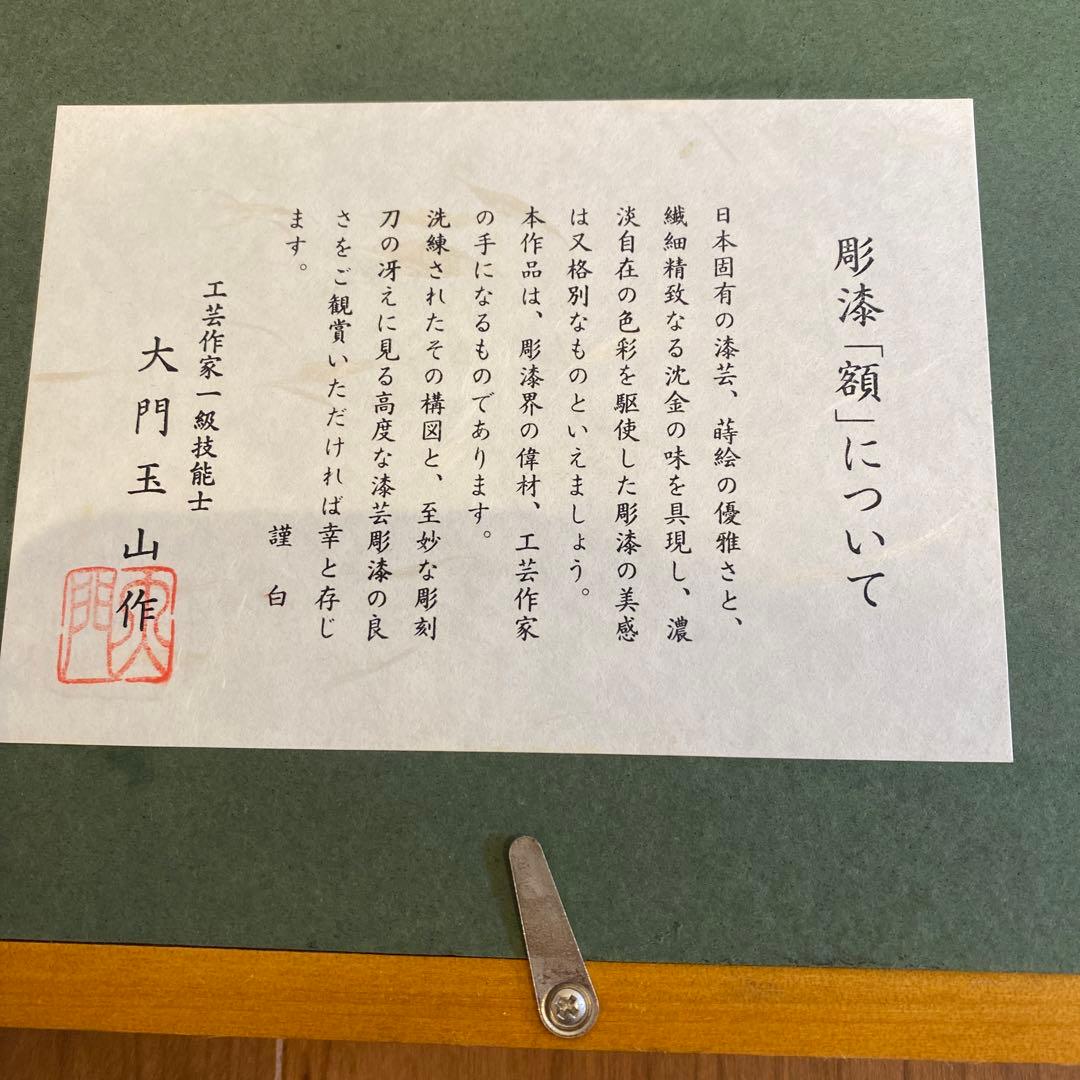 彫漆「額」について
日本固有の漆芸、蒔絵の優雅さと、
繊細精致なる沈金の味を具現し、濃
淡自在の色彩を駆使した彫漆の美感
は又格別なものといえましょう。
本作品は、彫漆界の偉材、工芸作家
の手になるものであります。
洗練されたその構図と、至妙な彫刻
刀の冴えに見る高度な漆芸彫漆の良
さをご観賞いただければ幸と存じ
ます。
謹白
工芸作家一級技能士
大門玉山作
大門